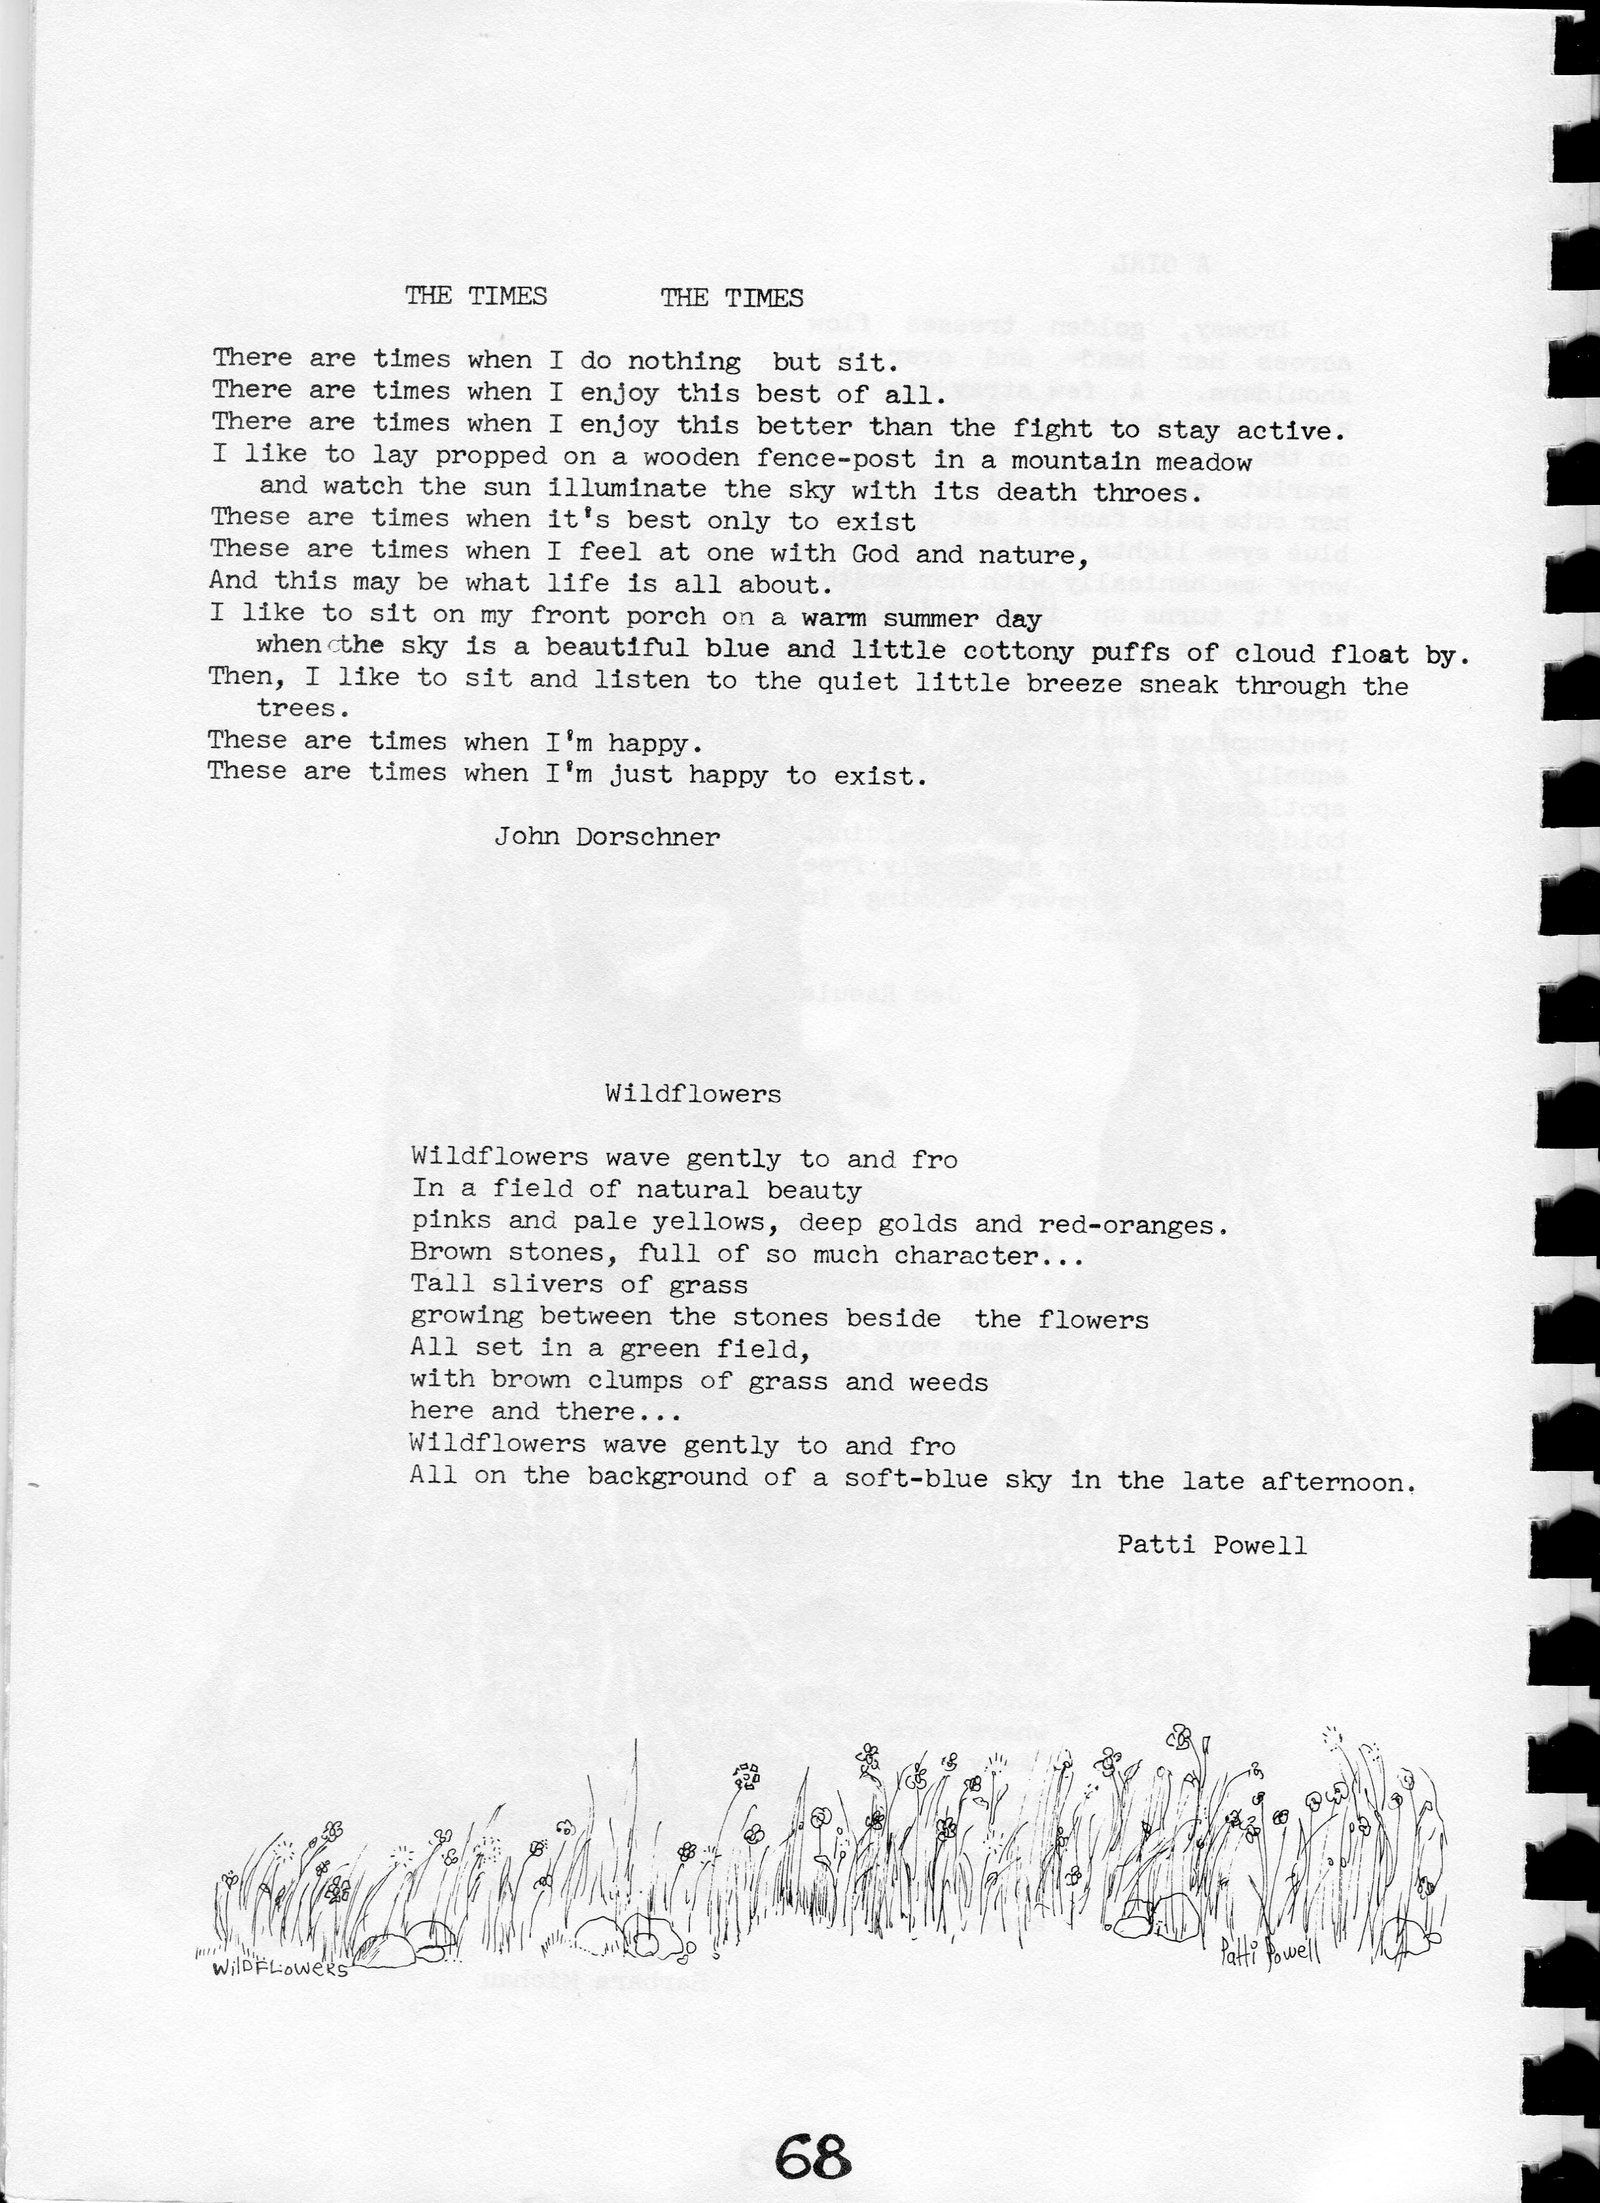 THE TIMES THE TIMES
There are times when I do nothing but sit.
There are times when I enjoy this best of all.
There are times when I enjoy this better than the fight to stay active.
I like to lay propped on a wooden fence-post in a mountain meadow
and watch the sun illuminate the sky with its death throes.
These are times when it's best only to exist
These are times when I feel at one with God and nature,
And this may be what life is all about.
I like to sit on my front porch on a warm summer day
when the sky is a beautiful blue and little cottony puffs of cloud float by.
Then, I like to sit and listen to the quiet little breeze sneak through the
trees.
These are times when I'm happy.
These are times when I'm just happy to exist.
John Dorschner
Wildflowers
Wildflowers wave gently to and fro
In a field of natural beauty
pinks and pale yellows, deep golds and red-oranges.
Brown stones, full of so much character...
Tall slivers of grass
growing between the stones beside the flowers
All set in a green field,
with brown clumps of grass and weeds
here and there...
Wildflowers wave gently to and fro
All on the background of a soft-blue sky in the late afternoon.
Patti Powell
WilDFLowers
Patti Powell
68